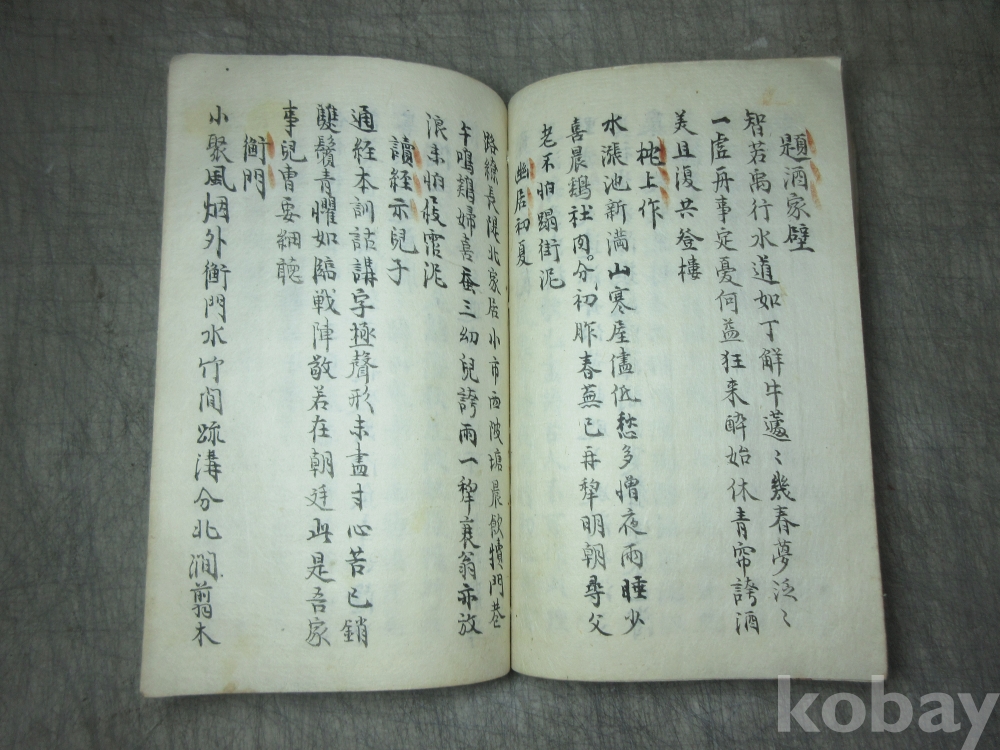 題酒家壁
智若禹行水道如丁解牛蘧〻幾春夢泛〻
一虛舟事定憂何益狂来醉始休青帘誇酒
美且復共登樓
枕上作
水漲池新滿山寒屋儘低愁多憎夜雨睡少
喜晨鷄社肉分初胙春蕪已再犂明朝尋父
老不怕蹋街泥
幽居初夏
路繚長隄北家居小市西陂塘晨飲犢門巷
午鳴鷄婦喜蚕三幼兒誇雨一犂衰翁亦放
浪未怕屐霑泥
讀經示兒子
通經本訓詁講字極聲形未盡寸心苦已銷
雙鬢青懼如臨戰陣敬若在朝廷此是吾家
事兒曹要細聽
衡門
小聚風烟外衡門水竹間疏溝分北澗剪木
kobay